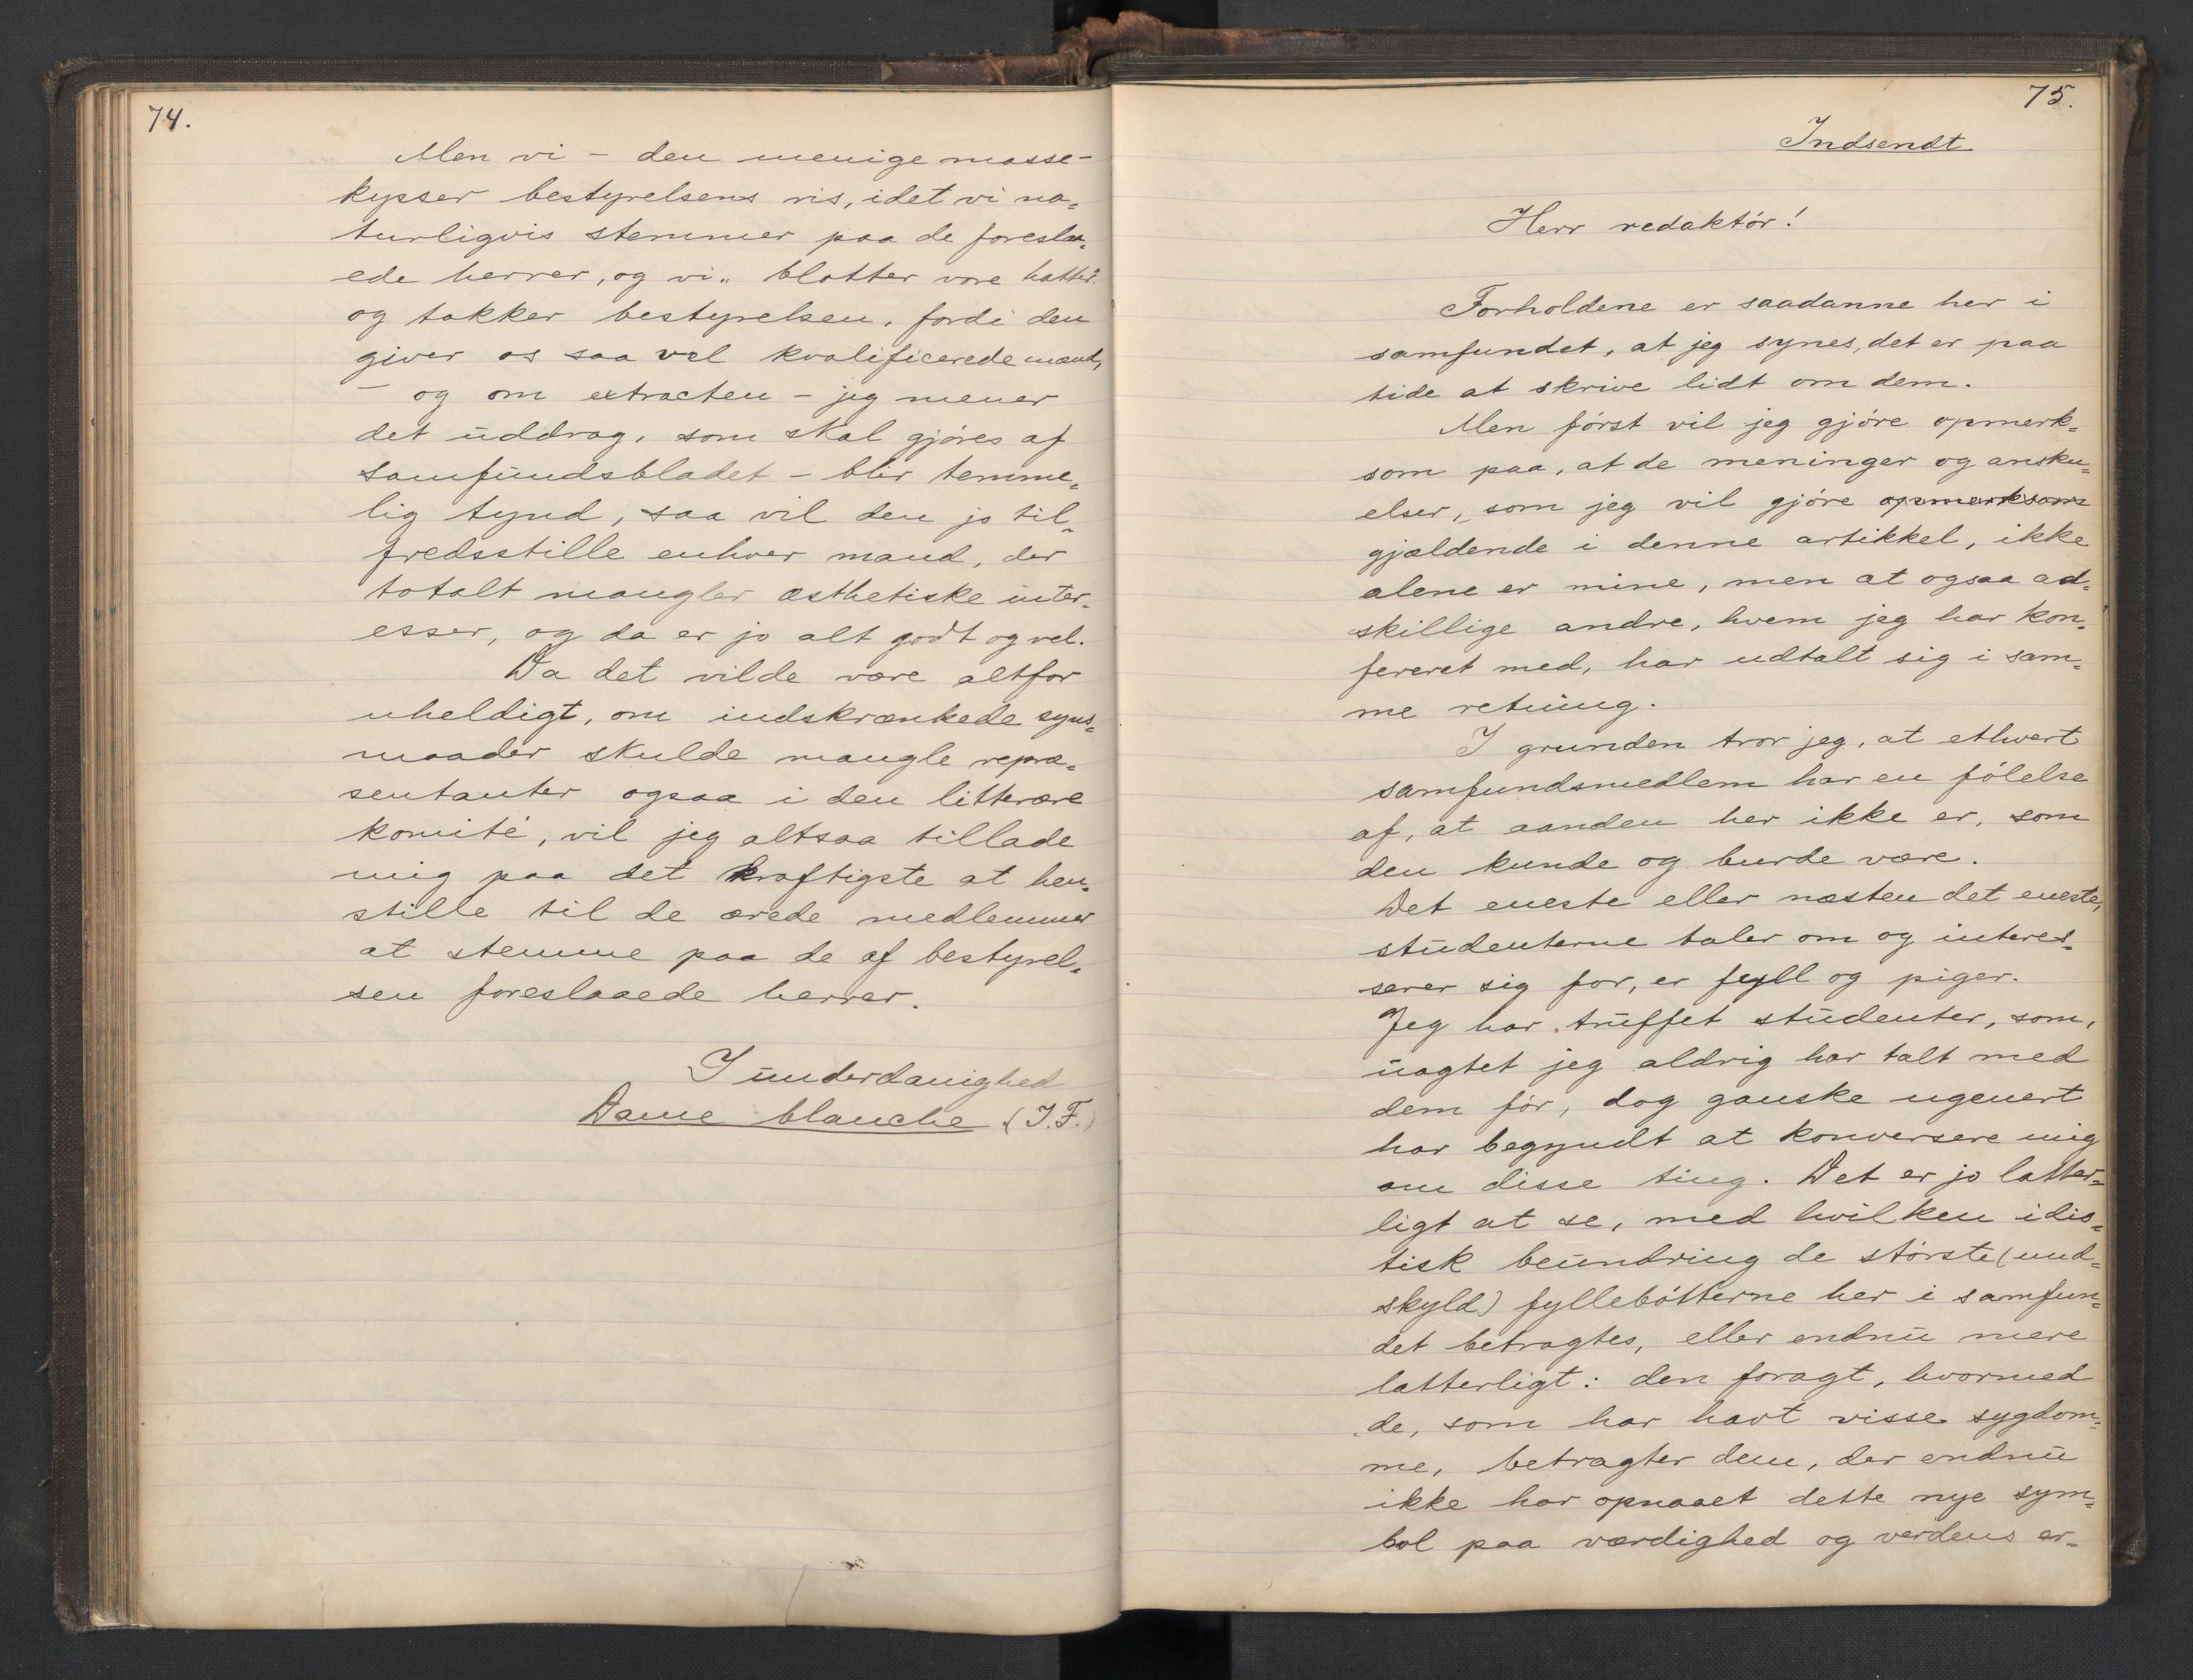 74.
Men vi – den menige masse –
kysser bestyrelsens ris, idet vi na=
turligvis stemmer paa de foreslaa=
ede herrer, og vi „blotter vore hatter"
og takker bestyrelsen, fordi den
giver os saa vel kvalificerede mænd,
– og om extracten – jeg mener
det uddrag, som skal gjøres af
samfundsbladet – blir temme=
lig tynd, saa vil den jo til=
fredsstille enhver mand, der
totalt mangler æsthetiske inter=
esser, og da er jo alt godt og vel.
Da det vilde være altfor
uheldigt, om indskrænkede syns=
maader skulde mangle repræ=
sentanter ogsaa i den litterære
komité, vil jeg altsaa tillade
mig paa det kraftigste at hen=
stille til de ærede medlemmer
at stemme paa de af bestyrel=
sen foreslaaede herrer.
I underdanighed
Dame blanche (I.F.)
75.
Indsendt
Herr redaktór!
Forholdene er saadanne her i
samfundet, at jeg synes, det er paa
tide at skrive lidt om dem.
Men fórst vil jeg gjóre opmerk=
som paa, at de meninger og ansku=
elser, som jeg vil gjóre opmerksom
gjældende i denne artikkel, ikke
alene er mine, men at ogsaa ad=
skillige andre, hvem jeg har kon=
fereret med, har udtalt sig i sam=
me retning.
I grunden tror jeg, at ethvert
samfundsmedlem har en fólelse
af, at aanden her ikke er, som
den kunde og burde være.
Det eneste eller næsten det eneste,
studenterne taler om og interes=
serer sig for, er fyll og piger.
Jeg har truffet studenter, som,
uagtet jeg aldrig har talt med
dem fór, dog ganske ugenert
har begyndt at konversere mig
om disse ting. Det er jo latter=
ligt at se, med hvilken idio=
tisk beundring de stórste (und=
skyld) fyllebótterne her i samfun=
det betragtes, eller endnu mere
latterligt: den foragt, hvormed
de, som har havt visse sygdom=
me, betragter dem, der endnu
ikke har opnaaet dette nye sym=
bol paa værdighed og verdens er=